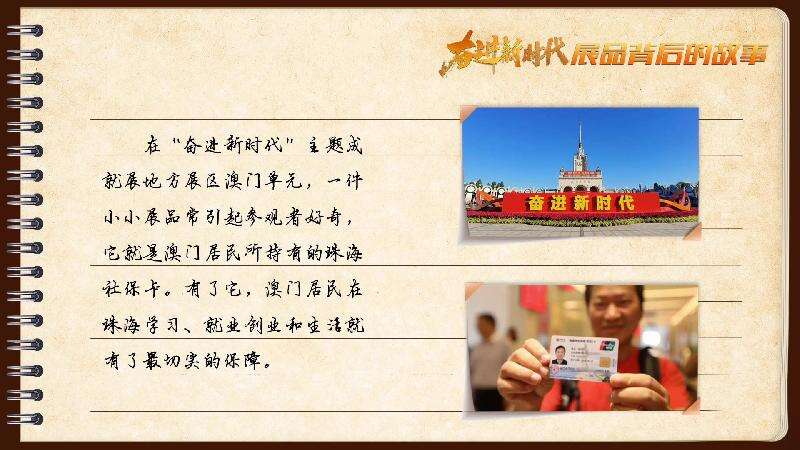 奋进新时代 展品背后的故事
在“奋进新时代”主题成
就展地方展区澳门单元，一件
小小展品常引起参观者好奇，
它就是澳门居民所持有的珠海
社保卡。有了它，澳门居民在
珠海学习、就业创业和生活就
有了最切实的保障。
奋进新时代